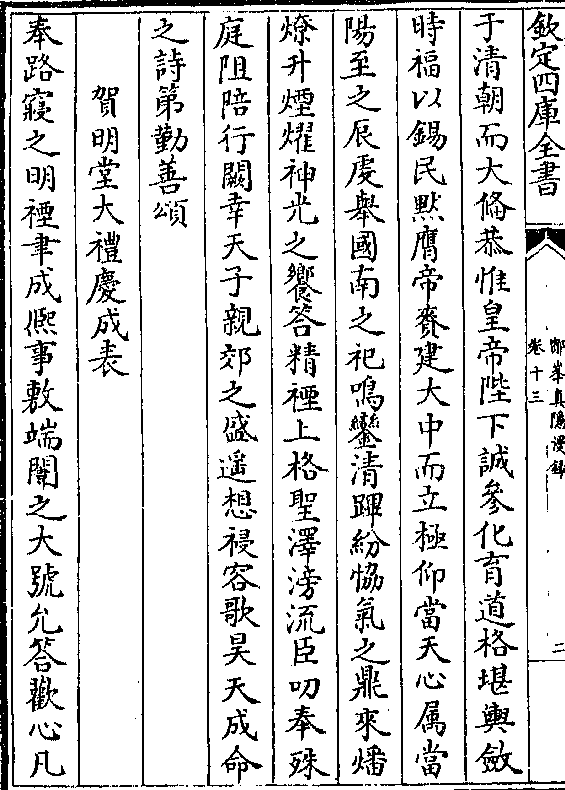 欽定四庫全書
鄮峯真隱漫錄
卷十三
二
于清朝而大備恭惟皇帝陛下誠參化育道格堪輿斂
時福以錫民黙膺帝賚建大中而立極仰當天心属當
陽至之辰虔舉國南之祀鳴鑾清蹕紛恊氣之鼎來燔
燎升煙燿神光之饗答精禋上格聖澤滂流臣叨奉殊
庭阻陪行闕幸天子親郊之盛遥想祲容歌昊天成命
之詩第勤善頌
賀明堂大禮慶成表
奉路寢之明禋聿成熈事敷端闈之大號允答歡心凡